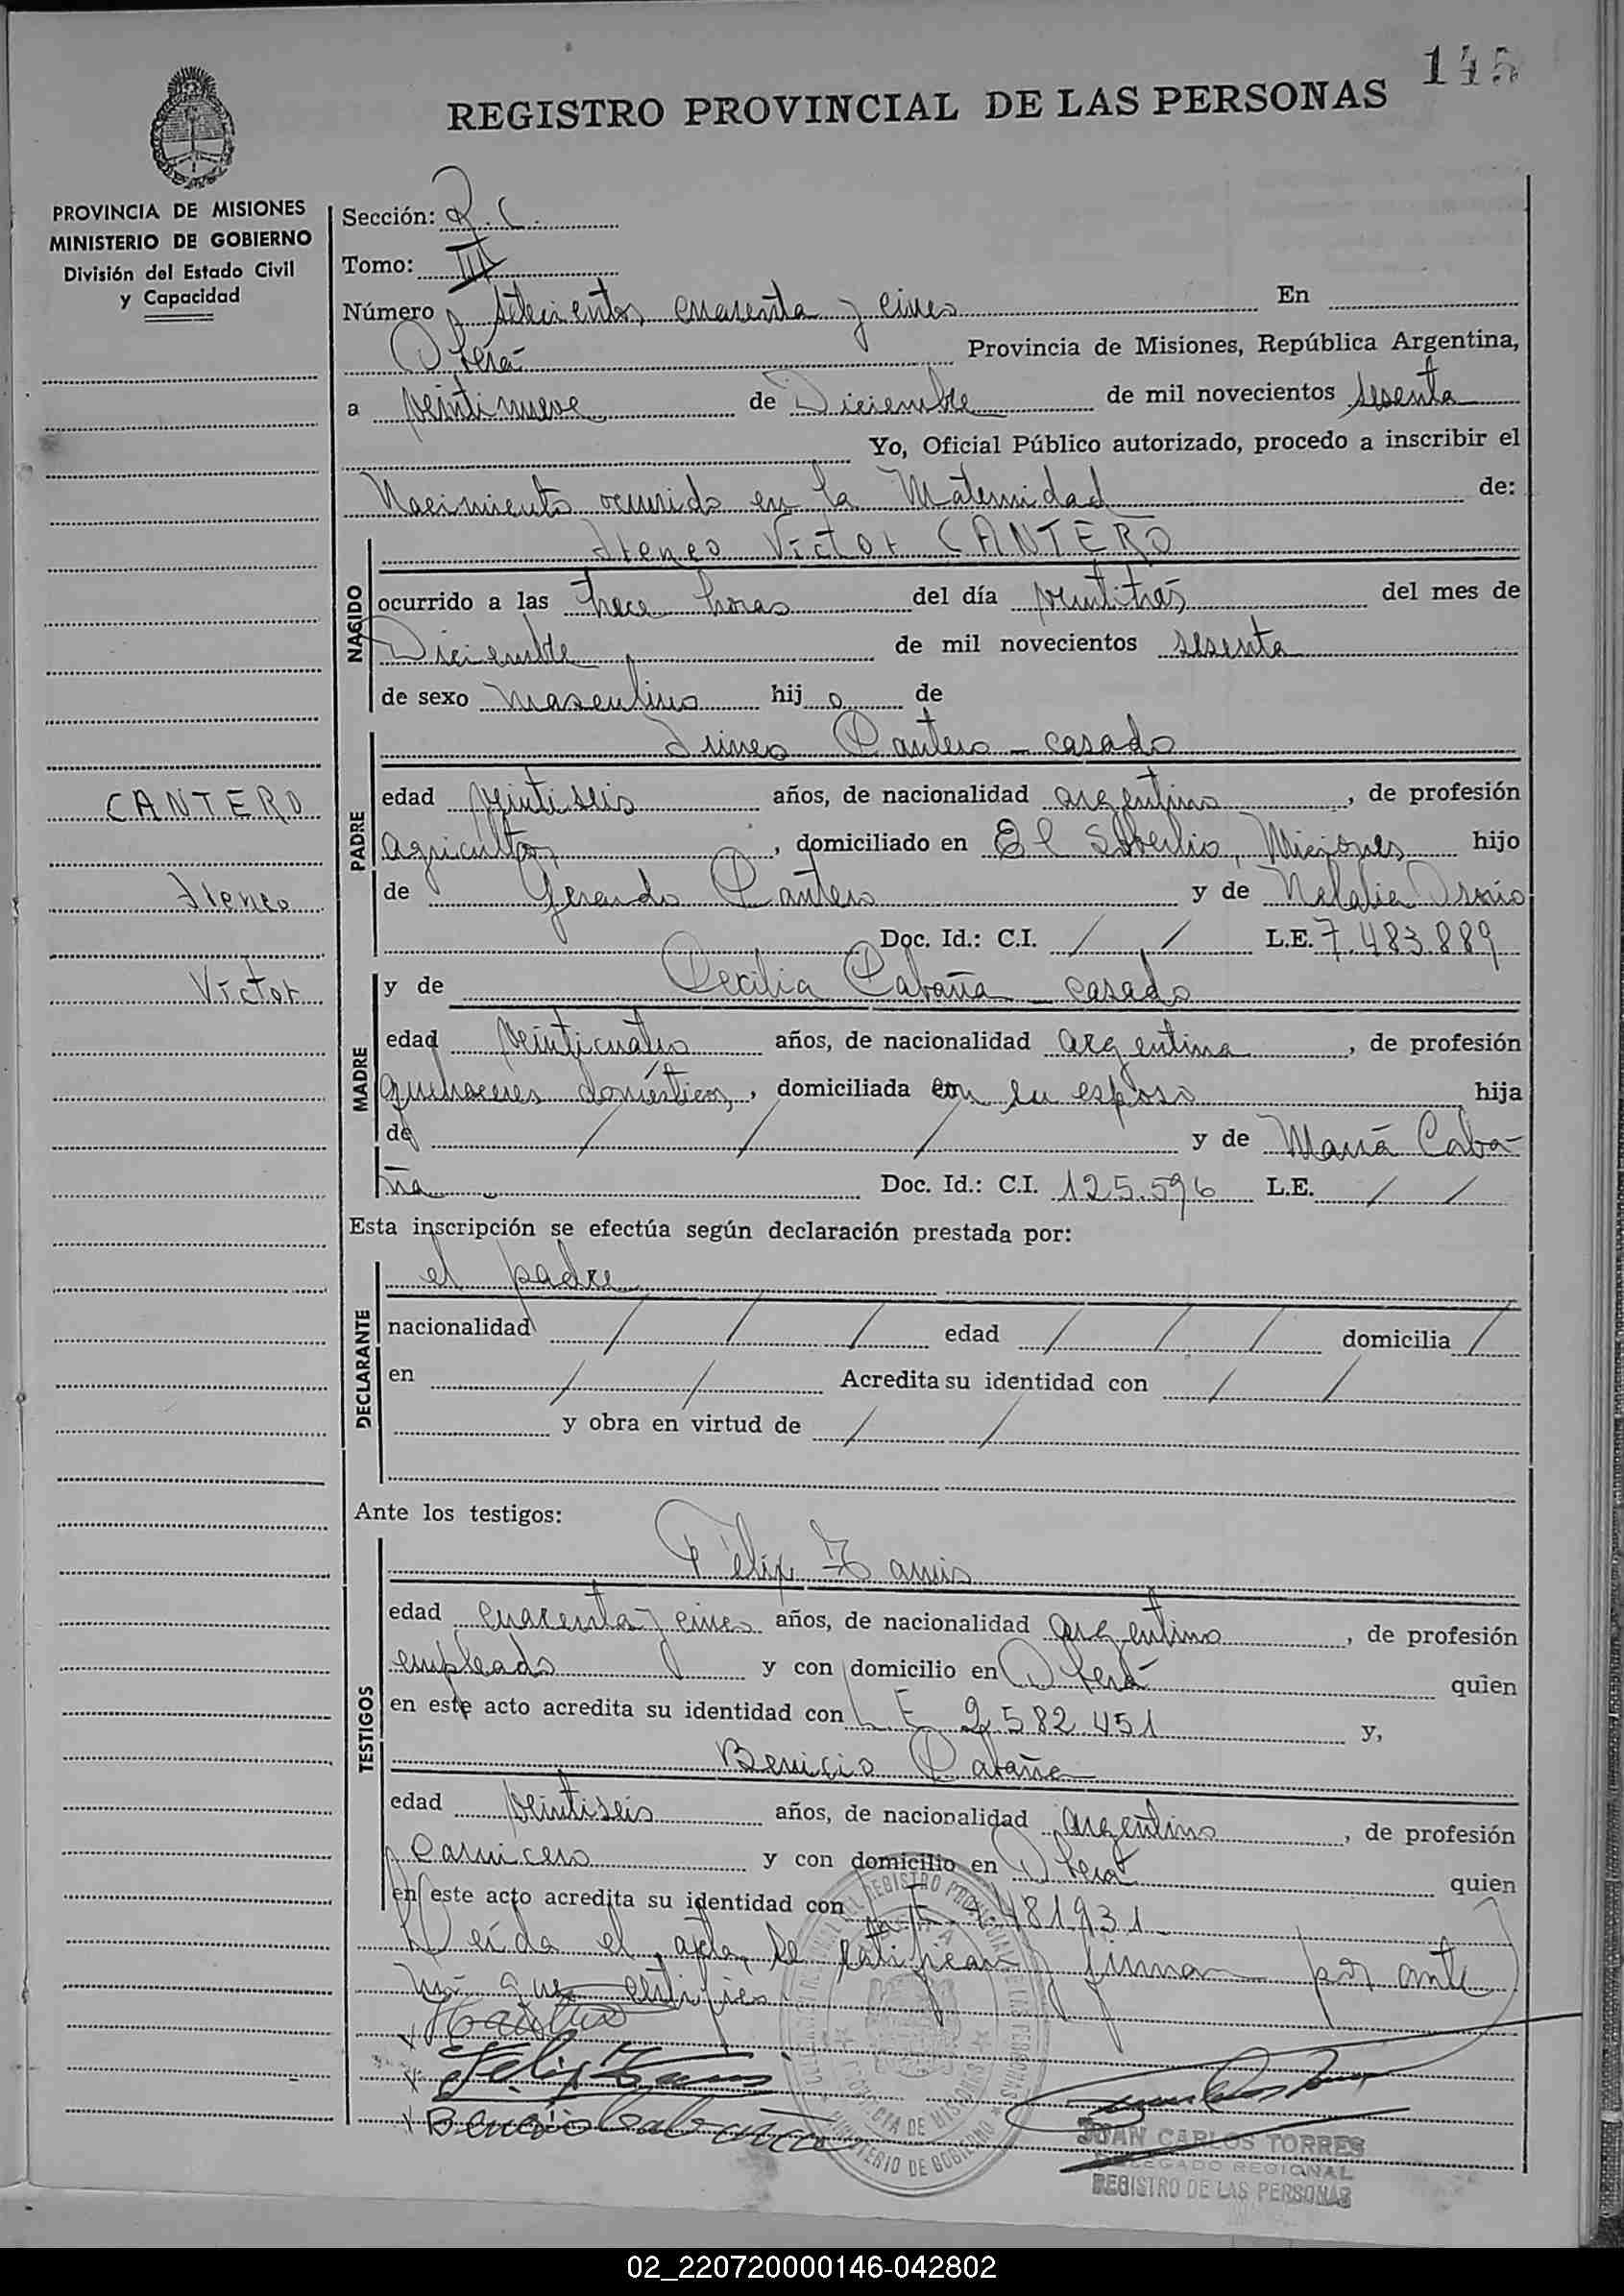 145
REGISTRO PROVINCIAL DE LAS PERSONAS
PROVINCIA DE MISIONES
MINISTERIO DE GOBIERNO
División del Estado Civil
y Capacidad
Sección: R.C.
Tomo: III
Número setecientos cuarenta y cinco En
Oberá Provincia de Misiones, República Argentina,
a veintinueve de Diciembre de mil novecientos sesenta
Yo, Oficial Público autorizado, procedo a inscribir el
Nacimiento ocurrido en la Maternidad de:
Ireneo Víctor CANTERO
NACIDO
ocurrido a las trece horas del día veintitrés del mes de
Diciembre de mil novecientos sesenta
de sexo Masculino hij o de
Irineo Cantero - casado
PADRE
edad veintiseis años, de nacionalidad argentino, de profesión
agricultor, domiciliado en El Soberbio, Misiones hijo
de Gerardo Cantero y de Natalia Osorio
Doc. Id.: C.I. / / L.E. 7.483.889
CANTERO
Ireneo
Víctor
y de Cecilia Cabaña - casada
MADRE
edad veinticuatro años, de nacionalidad argentina, de profesión
quehaceres domésticos, domiciliada con su esposo hija
de / / / y de María Caba-
ña Doc. Id.: C.I. 125.596 L.E. / /
Esta inscripción se efectúa según declaración prestada por:
el padre
DECLARANTE
nacionalidad / / / edad / / / domicilia /
en / / Acredita su identidad con / /
y obra en virtud de / /
Ante los testigos:
Félix
TESTIGOS
edad cuarenta y cinco años, de nacionalidad argentino, de profesión
empleado y con domicilio en Oberá quien
en este acto acredita su identidad con L E 2582451 y,
Benicio Cabaña
edad veintiseis años, de nacionalidad argentino, de profesión
carnicero y con domicilio en Oberá quien
en este acto acredita su identidad con L E 7.481931
Leída el acta, se ratifican y firman por ante
mí que certifico
Félix
Benicio Cabaña
JUAN CARLOS TORRES
DELEGADO REGIONAL
REGISTRO DE LAS PERSONAS
PROVINCIA DE MISIONES
MINISTERIO DE GOBIERNO
02_220720000146-042802